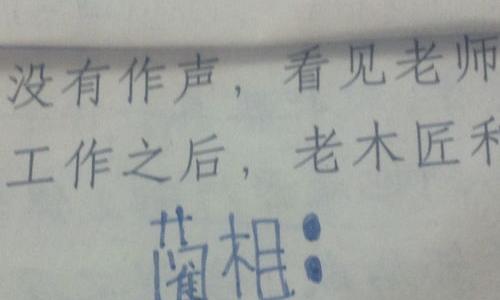 没有作声，看见老师
工作之后，老木匠和
蔺相：